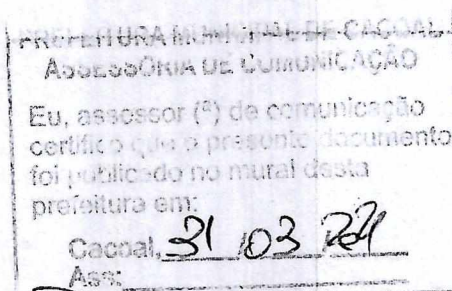 PREFEITURA MUNICIPAL DE CACOAL
ASSESSORIA DE COMUNICAÇÃO
Eu, assessor (ª) de comunicação
certifico que o presente documento
foi publicado no mural desta
prefeitura em:
Cacoal, 31 /03
Ass: